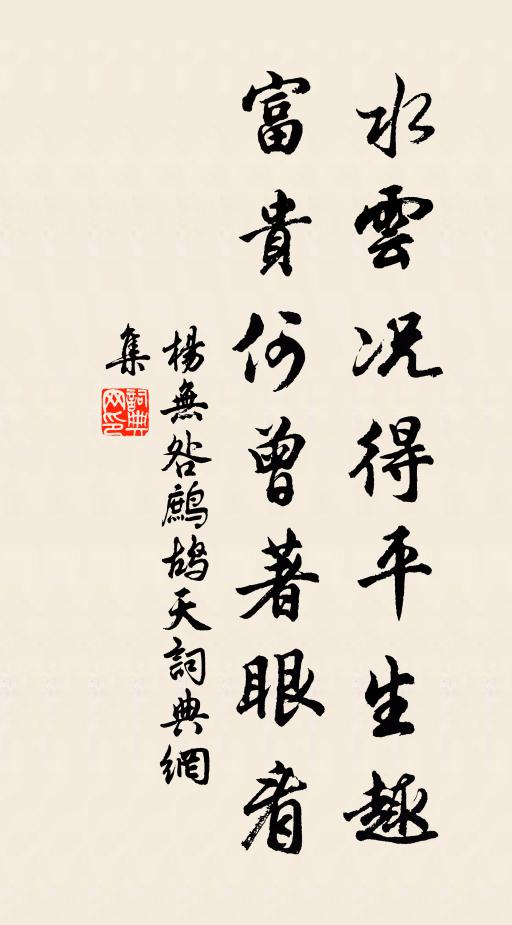 水雲况得平生趣
富貴何曾著眼看
楊無咎鷓鴣天詞典網
集
詞典網印